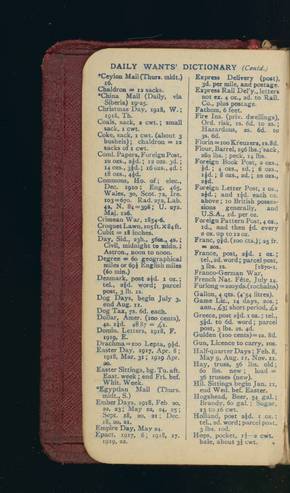 DAILY WANTS' DICTIONARY (Contd.)
*Ceylon Mail (Thurs. midt.)
16.
Chaldron = 12 sacks.
*China Mail (Daily, via
Siberia) 19-25.
Christmas Day, 1918, W.;
1918, Th.
Coals, sack, 2 cwt.; small
sack, 1 cwt.
Coke, sack, 1 cwt. (about 3
bushels); chaldron = 12
sacks of 1 cwt.
Cond. Papers, Foreign Post,
Commons, Ho. of; elec.
Dec. 1910: Eng. 465,
Wales, 30, Scot. 72, Ire.
Maj. 126.
Crimean War, 1854-6.
Croquet Lawn, 105ft. x 84ft.
Cubit = 18 inches.
Civil, midnight to midn.;
Astron., noon to noon.
Degree = 60 geographical
miles or 69½ English miles
(60 min.)
Denmark, post
tel., 2½d. word; parcel
post, 3 lb. 1s.
Dog Days, begin July 3,
end Aug. 11.
Dog Tax, 7s. 6d. each.
Dollar, Amer. (100 cents),
Domin. Letters, 1918, F.
1919, E.
Drachma = 100 Lepta, 9½d.
Easter Day, 1917, Apr. 8;
1918, Mar. 31; 1919 Apr.
20.
Easter Sittings, bg. Tu. aft.
East. week; end Fri. bef.
Whit. Week.
*Egyptian Mail (Thurs.
midt., S.)
Ember Days, 1918, Feb. 20,
22, 23; May 22, 24, 25;
Sept. 18, 20, 21; Dec.
18, 20, 21.
Empire Day, May 24.
Epact, 1917, 6; 1918, 17.
1919, 28.
Express Delivery (post),
3d. per mile, and postage.
Express Rail Del'y, letters
not ex. 4 oz., 2d. to Rail.
Co., plus postage.
Fathom, 6 feet.
Fire Ins. (priv. dwellings),
Ord. risk, 1s. 6d. to 2s.;
Hazardous, 2s. 6d. to
3s. 6d.
Florin = 100 Kreuzers, 1s. 8d.
Flour, Barrel, 196 lbs.; sack,
280 lbs.; peck, 14 lbs.
Foreign Letter Post, 1 oz.,
above; to British possessions
generally, and
U.S.A., 1d. per oz.
Foreign Pattern Post, 4 oz.
1d., and then ½d. every
2 oz. up to 12 oz.
Franc, 9½d. (100 cts.); 25 fr.
= 20s.
tel., 2d. word; parcel post,
3 lbs. 1s.
Franco-German War, 1870-1.
French Nat. Fête, July 14.
Furlong = 220 yds. (10 chains)
Gallons, 4 qts. (4.54 litres).
Game Lic., 14 days, 20s.;
Greece, post
Gulden (100 cents) = 1s. 8d.
Gun, Licence to carry, 10s.
Half-quarter Days: Feb. 8,
May 9, Aug. 11, Nov. 11.
Hay, truss, 56 lbs. old;
60 lbs. new; load =
36 trusses (new).
Hil. Sittings begin Jan. 11,
end Wed. bef. Easter.
Hogshead, Beer, 54 gal.;
Brandy, 60 gal.; Sugar,
13 to 16 cwt.
tel., 2d. word; parcel post,
Hops, pocket, 1½-2 cwt.
bale, about 3½ cwt.